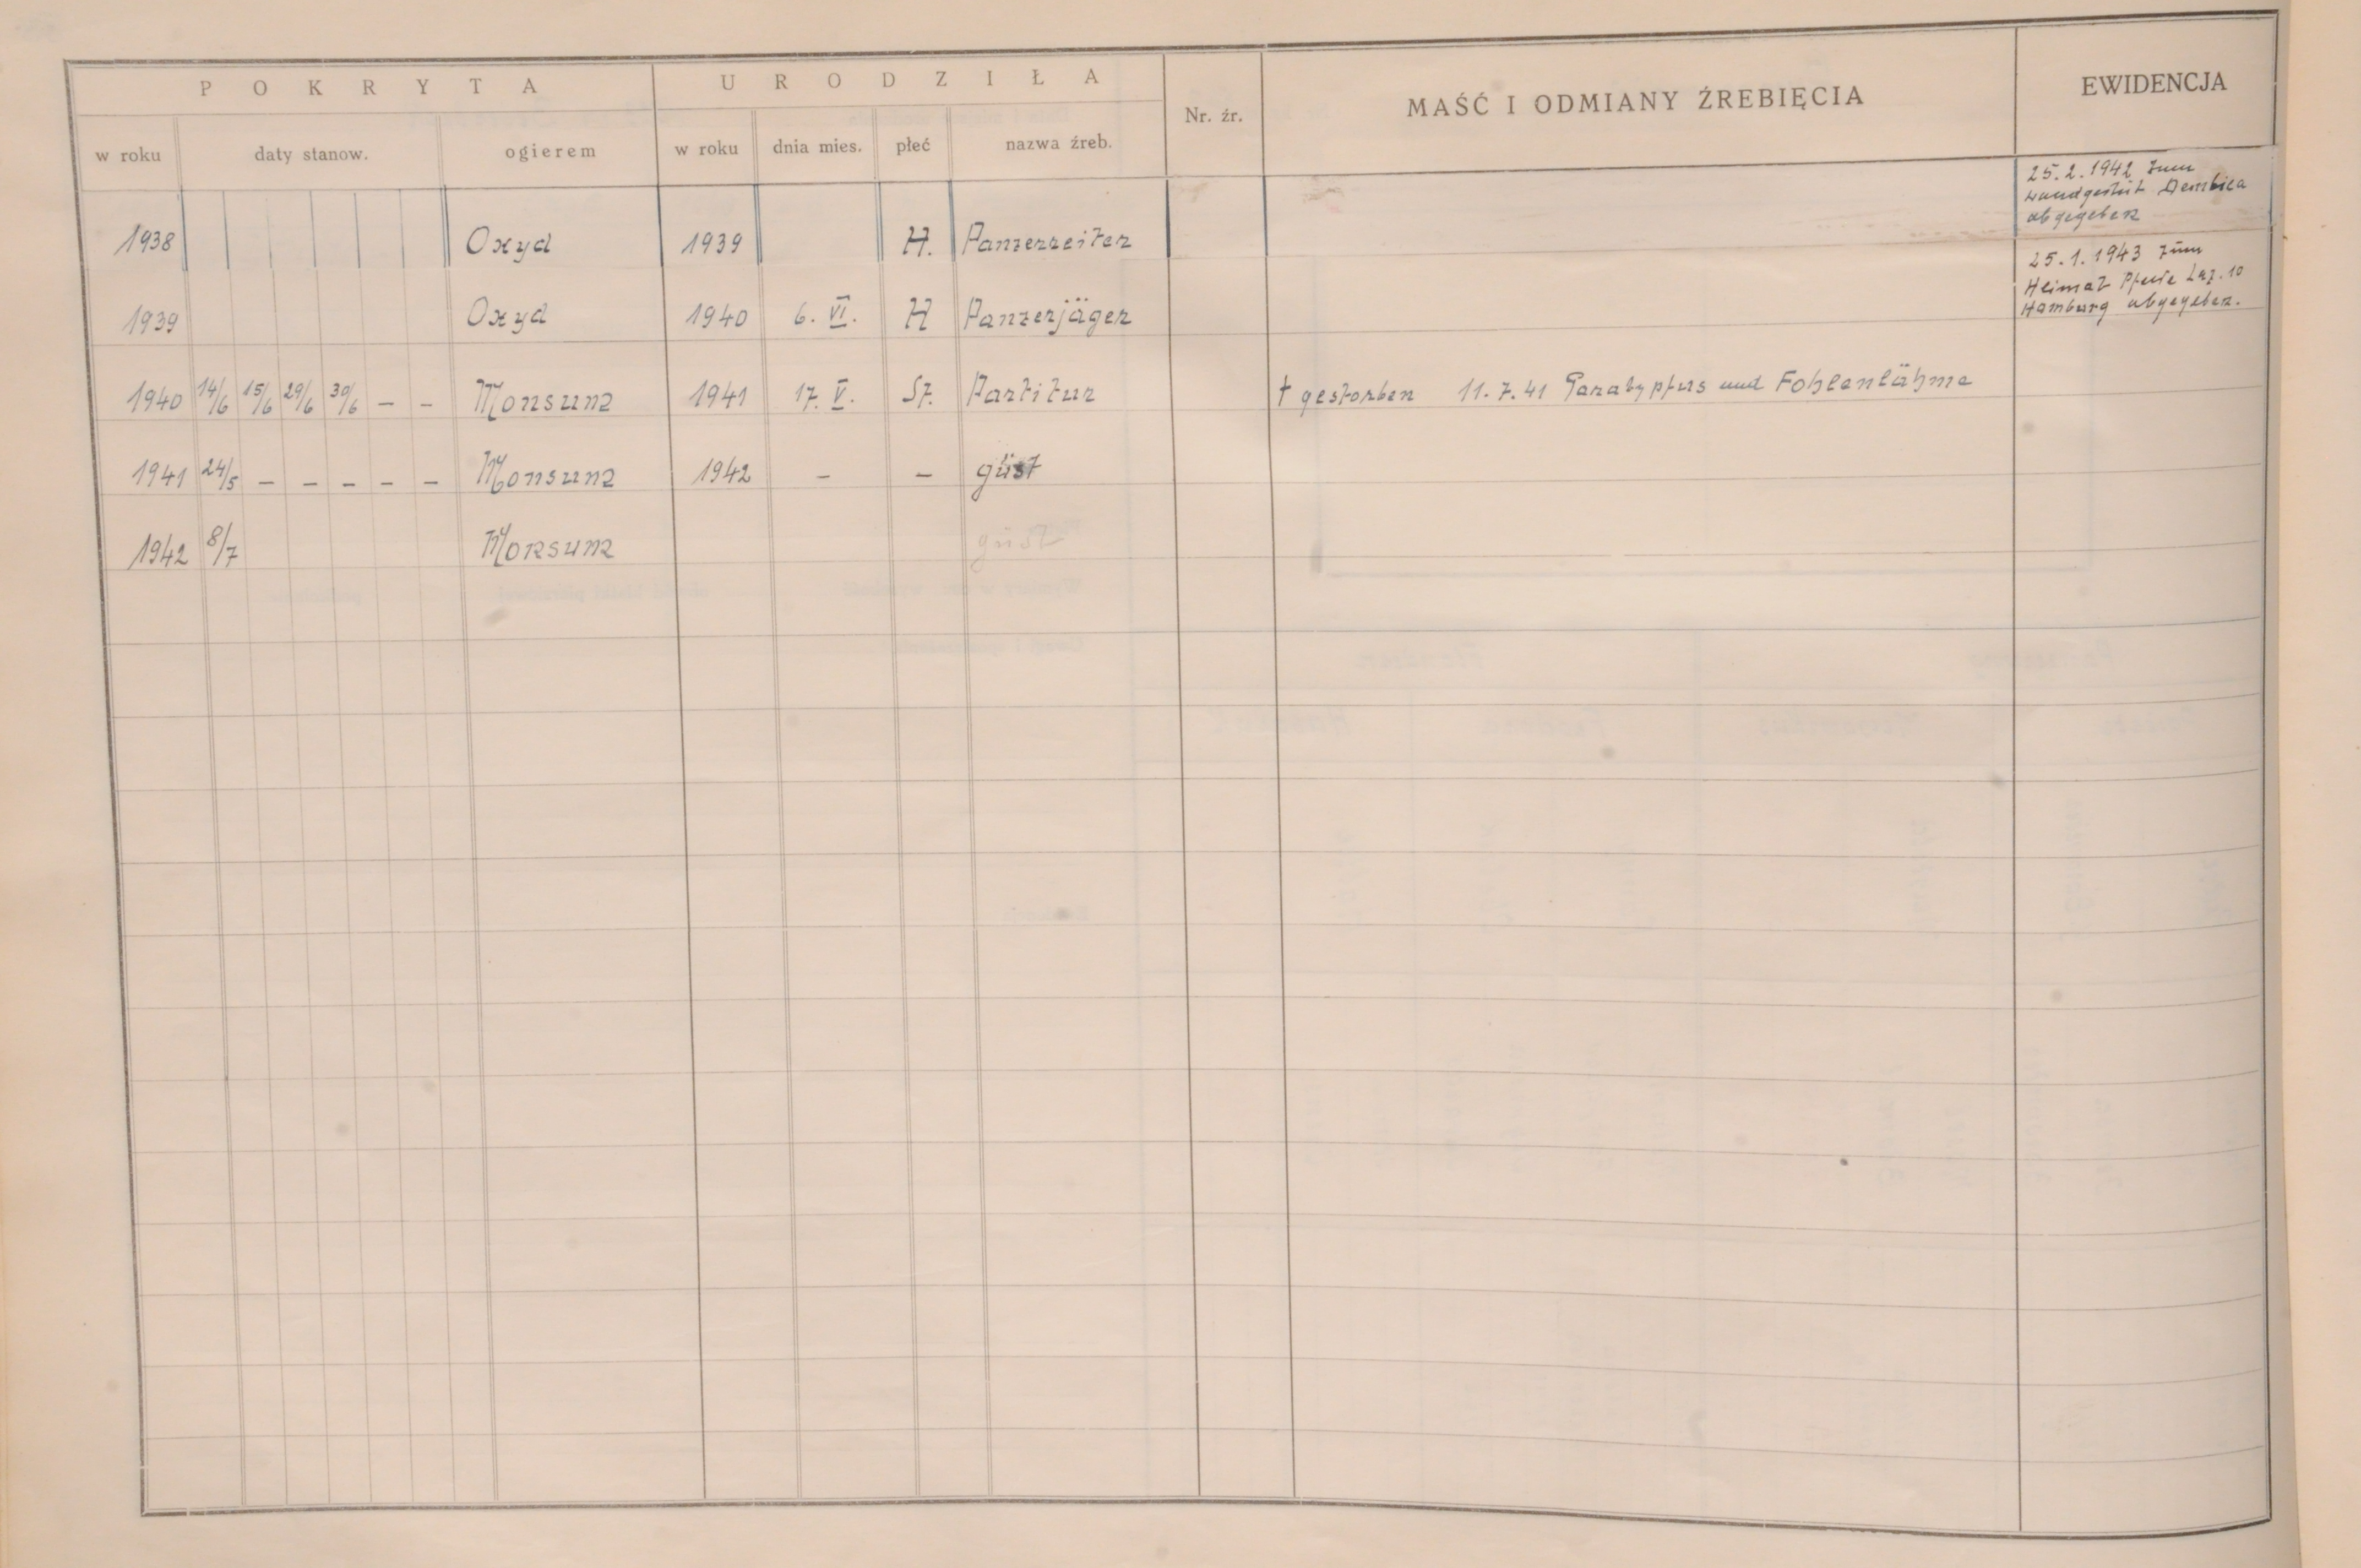 POKRYTA URODZIŁA Nr. źr. MAŚĆ I ODMIANY ŹREBIĘCIA EWIDENCJA
w roku daty stanow. ogierem w roku dnia mies. płeć nazwa źreb.
1938 Oxyd 1939 H. Panzerreiter
25.2.1942 zum
Landgestüt Dembica
abgegeben
1939 Oxyd 1940 6. VI. H Panzerjäger
25.1.1943 zum
Heimat Pferde Laz. 10
Hamburg abgegeben.
1940 14/6 15/6 29/6 30/6 – – Monsun 1941 17. V. St. Partitur † gestorben 11.7.41 Paratyphus und Fohlenlähme
1941 24/5 – – – – – Monsun 1942 – – güst
1942 8/7 Monsun güst